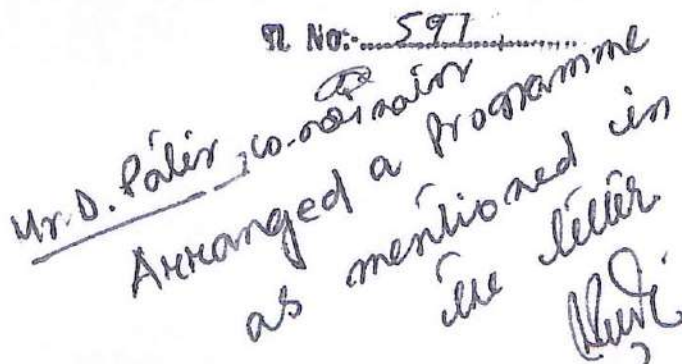 No:- 597
Mr. D. Patir, co-ordinator
Arranged a Programme
as mentioned in
the letter